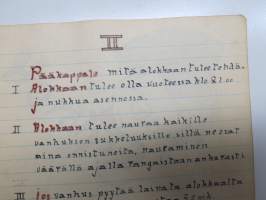 II
Pääkappale mitä alokkaan tulee tehdä.
I Alokkaan tulee olla vuoteessa klo 21.00
ja nukkua asennossa.
II Alokkaan tulee nauraa kaikille
vanhuksen sukkeluuksille sillä ne ovat
aina onnistuneita, nauraminen
väärällä ajalla rangaistaan ankarasti
III Jos vanhus pyytää lainata alokkaalta